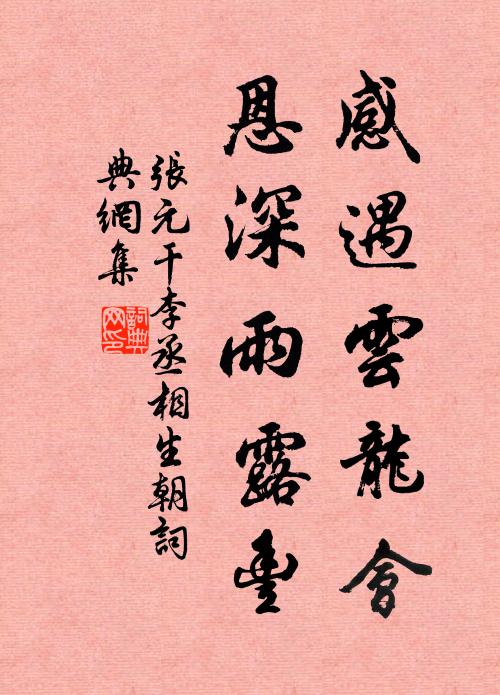 感遇雲龍會
恩深雨露豐
張元干李丞相生朝詞
典網集
詞典
网印